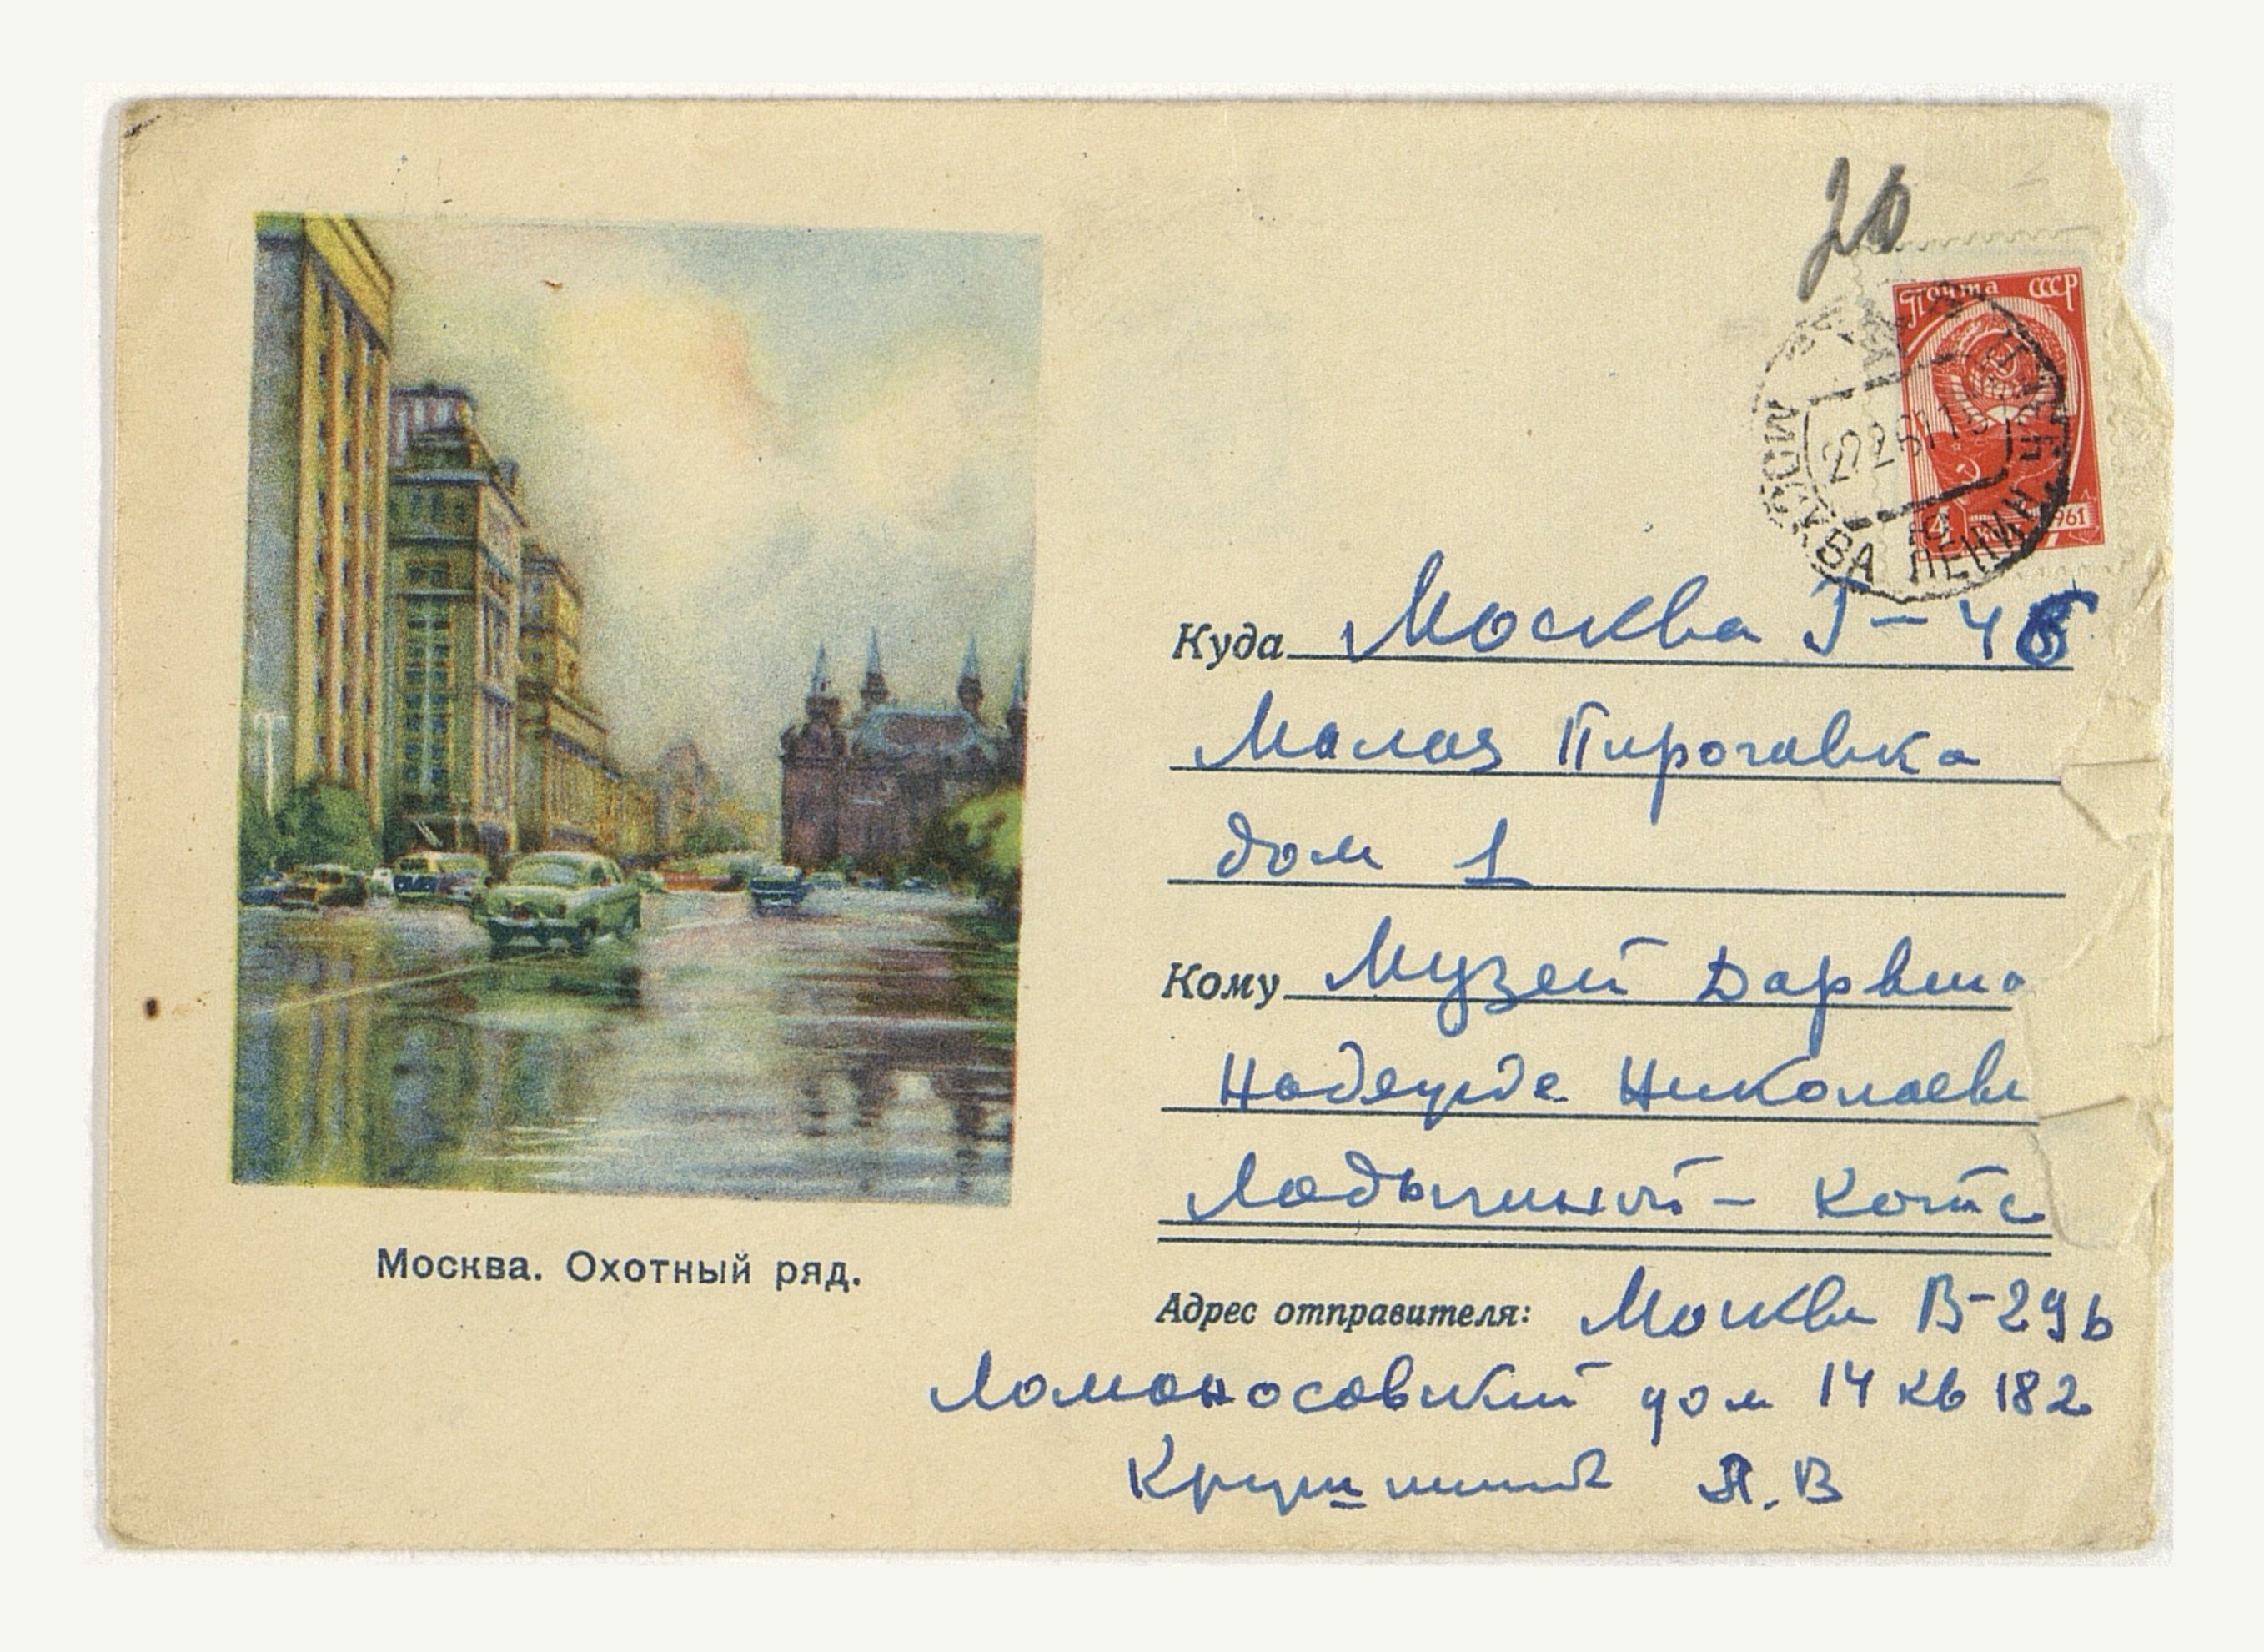 20
Почта СССР
22 2 61 1
МОСКВА ЛЕНИН
4 1961
Куда Москва Г-48
Малая Пироговка
дом 1
Кому Музей Дарвина
Надежде Николаевн
Ладыгиной - Котс
Адрес отправителя: Москва В-296
Ломоносовский дом 14 кв 182
Крушинский Л.В
Москва. Охотный ряд.